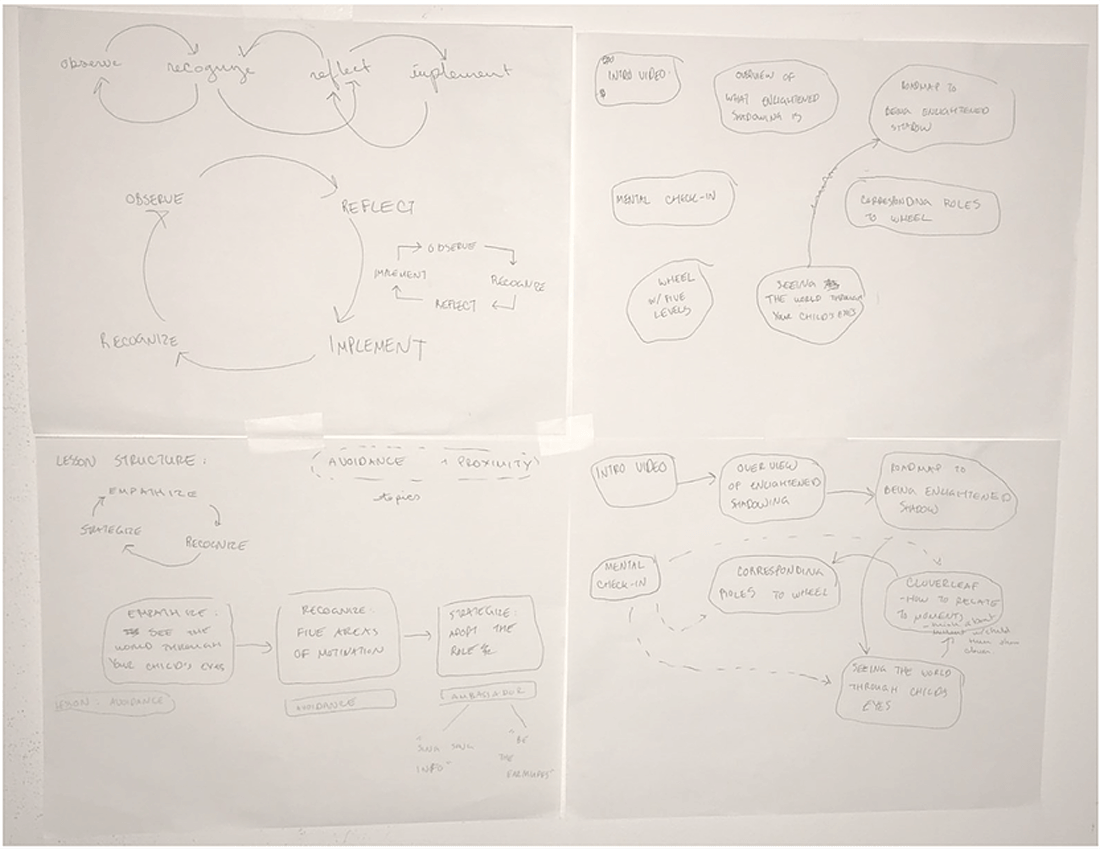 observe
recognize
reflect
implement
OBSERVE
REFLECT
IMPLEMENT
RECOGNIZE
OBSERVE
RECOGNIZE
REFLECT
IMPLEMENT
INTRO VIDEO
OVERVIEW OF
WHAT ENLIGHTENED
SHADOWING IS
ROADMAP TO
BEING ENLIGHTENED
SHADOW
MENTAL CHECK-IN
CORRESPONDING ROLES
TO WHEEL
WHEEL
W/ FIVE
LEVELS
SEEING
THE WORLD THROUGH
YOUR CHILD'S EYES
LESSON STRUCTURE:
EMPATHIZE
RECOGNIZE
STRATEGIZE
AVOIDANCE + PROXIMITY
topics
EMPATHIZE:
SEE THE
WORLD THROUGH
YOUR CHILD'S EYES
RECOGNIZE:
FIVE AREAS
OF MOTIVATION
STRATEGIZE:
ADOPT THE
ROLE
LESSON: AVOIDANCE
AVOIDANCE
AMBASSADOR
"SING SONG
INFO"
"BE
THE
EARMUFFS"
INTRO VIDEO
OVERVIEW
OF ENLIGHTENED
SHADOWING
ROADMAP TO
BEING ENLIGHTENED
SHADOW
MENTAL
CHECK-IN
CORRESPONDING
ROLES TO WHEEL
CLOVERLEAF
-HOW TO RELATE
TO MOMENTS
- think about
moment w/ child
then
clover
SEEING THE WORLD
THROUGH CHILD'S
EYES